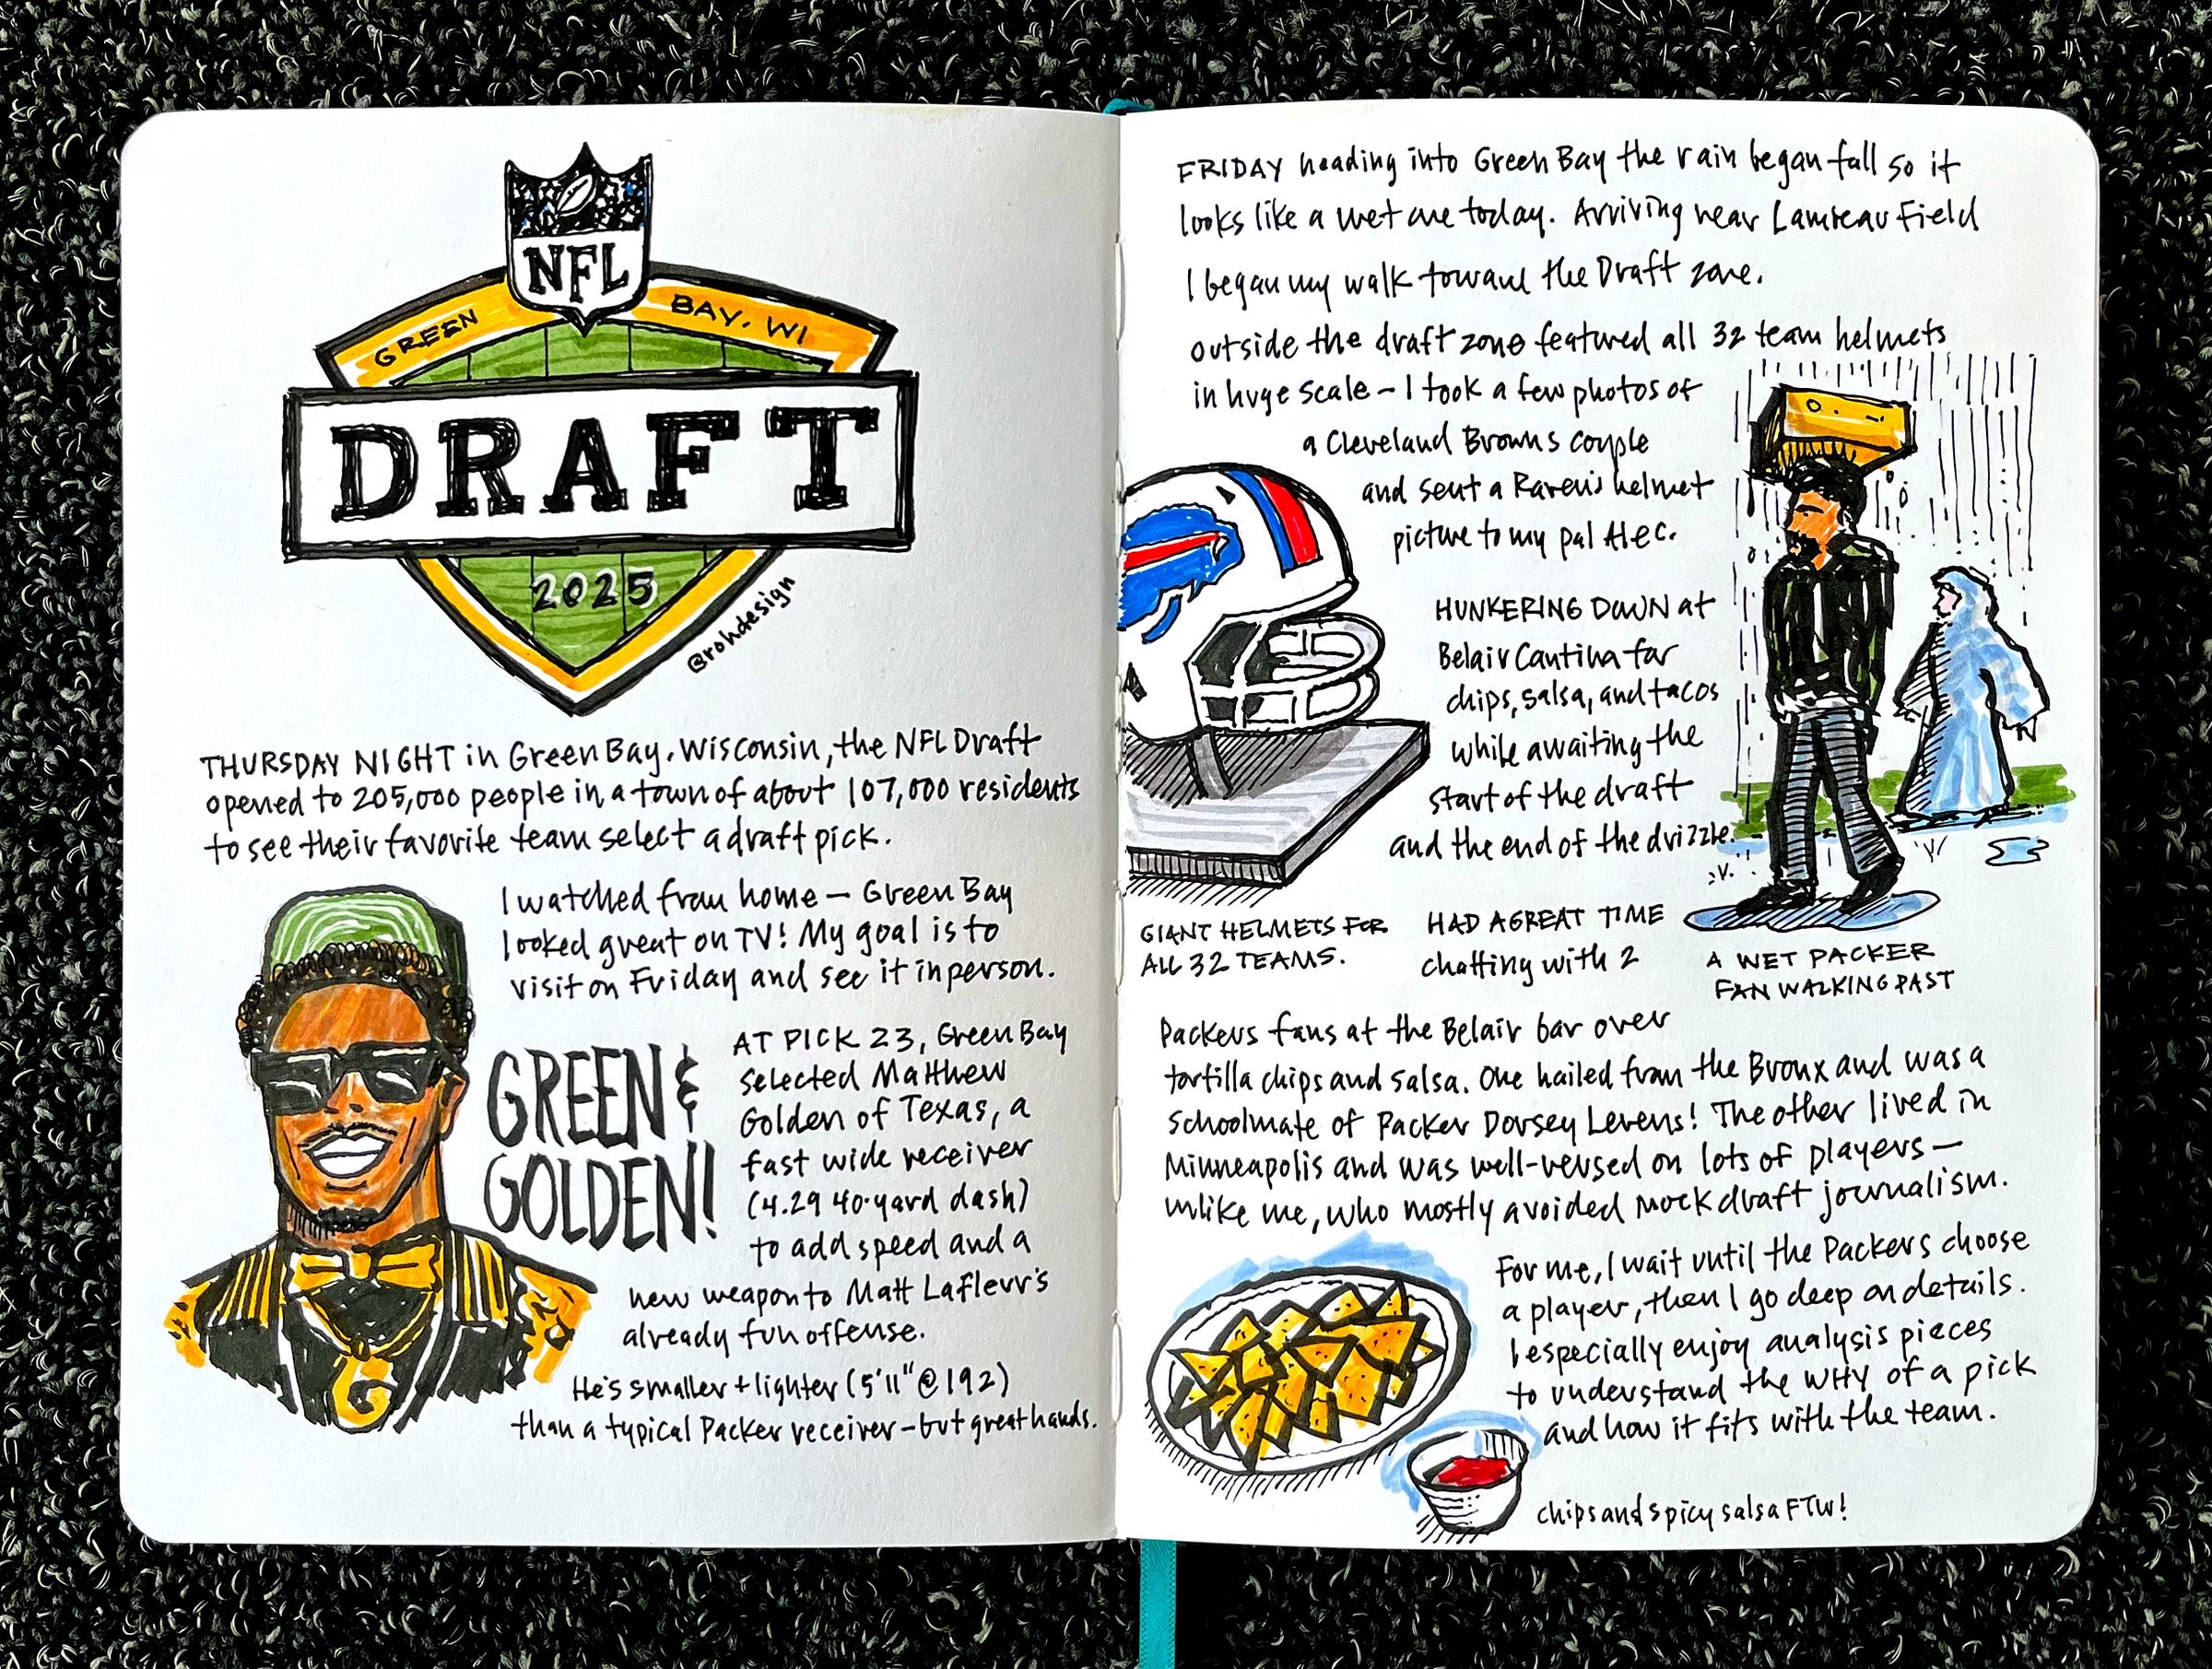 NFL
GREEN BAY, WI
DRAFT
2025
@rohdesign
THURSDAY NIGHT in Green Bay, Wisconsin, the NFL Draft
opened to 205,000 people in a town of about 107,000 residents
to see their favorite team select a draft pick.
I watched from home — Green Bay
looked great on TV! My goal is to
visit on Friday and see it in person.
GREEN &
GOLDEN!
AT PICK 23, Green Bay
selected Matthew
Golden of Texas, a
fast wide receiver
(4.29 40-yard dash)
to add speed and a
new weapon to Matt LaFleur's
already fun offense.
He's smaller + lighter (5'11" @ 192)
than a typical Packer receiver — but great hands.
G
FRIDAY heading into Green Bay the rain began fall so it
looks like a wet one today. Arriving near Lambeau Field
I began my walk toward the Draft zone.
outside the draft zone featured all 32 team helmets
in huge scale — I took a few photos of
a Cleveland Browns couple
and sent a Ravens helmet
picture to my pal Alec.
HUNKERING DOWN at
Belair Cantina for
chips, salsa, and tacos
while awaiting the
start of the draft
and the end of the drizzle.
GIANT HELMETS FOR
ALL 32 TEAMS.
A WET PACKER
FAN WALKING PAST
HAD A GREAT TIME
chatting with 2
Packers fans at the Belair bar over
tortilla chips and salsa. One hailed from the Bronx and was a
schoolmate of Packer Dorsey Levens! The other lived in
Minneapolis and was well-versed on lots of players —
unlike me, who mostly avoided mock draft journalism.
For me, I wait until the Packers choose
a player, then I go deep on details.
I especially enjoy analysis pieces
to understand the WHY of a pick
and how it fits with the team.
chips and spicy salsa FTW!